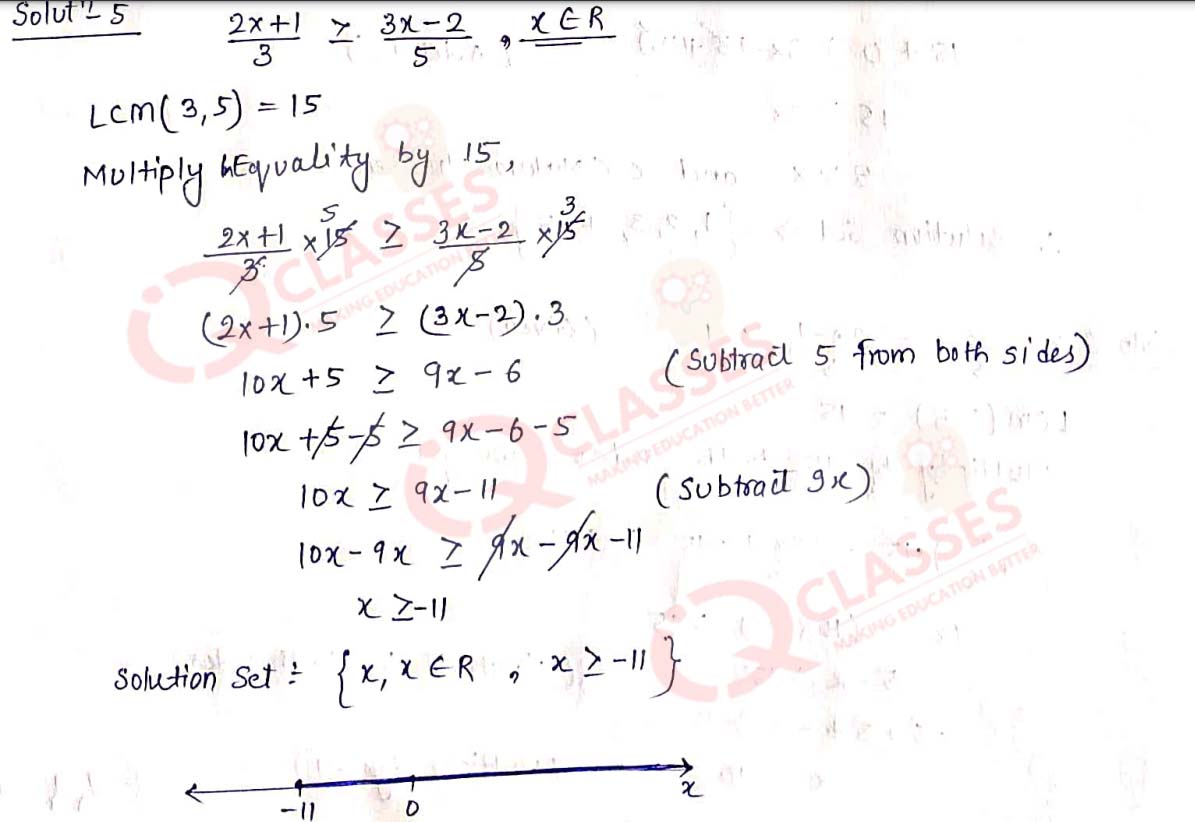 Solutⁿ 5
(2x+1)/3 ≥ (3x-2)/5 , x ∈ R
LCM(3,5) = 15
Multiply inEquality by 15,
(2x+1)/3 × 15 5 ≥ (3x-2)/5 × 15 3
(2x+1)·5 ≥ (3x-2)·3
10x+5 ≥ 9x-6 (Subtract 5 from both sides)
10x+5-5 ≥ 9x-6-5
10x ≥ 9x-11 (Subtract 9x)
10x-9x ≥ 9x-9x-11
x ≥ -11
Solution Set :- {x, x ∈ R , x ≥ -11}
-11 0 x
iQ CLASSES
MAKING EDUCATION BETTER
iQ CLASSES
MAKING EDUCATION BETTER
iQ CLASSES
MAKING EDUCATION BETTER